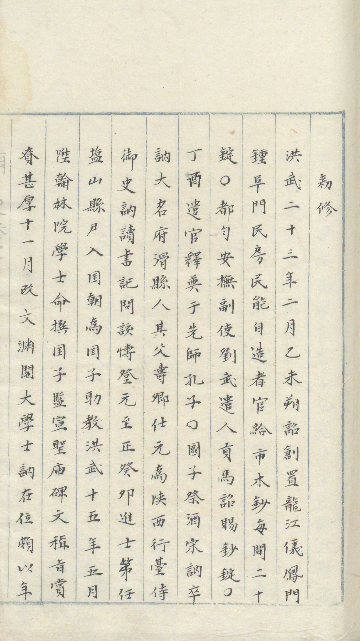 勅修
洪武二十三年二月乙未朔詔創置龍江儀鳳門
鍾阜門民房民能自造者官給市木鈔每間二十
錠○都勻安撫副使劉武遣人貢馬詔賜鈔錠○
丁酉遣官釋奠于先師孔子○國子祭酒宋訥卒
訥大名府滑縣人其父壽卿仕元為陝西行臺侍
御史訥讀書記問該博登元至正癸卯進士第任
盐山縣尹入国朝為国子助教洪武十五年五月
陞翰林院學士命撰国子監宣聖廟碑文稱旨賞
賚甚厚十一月改文淵閣大學士訥在位頗以年